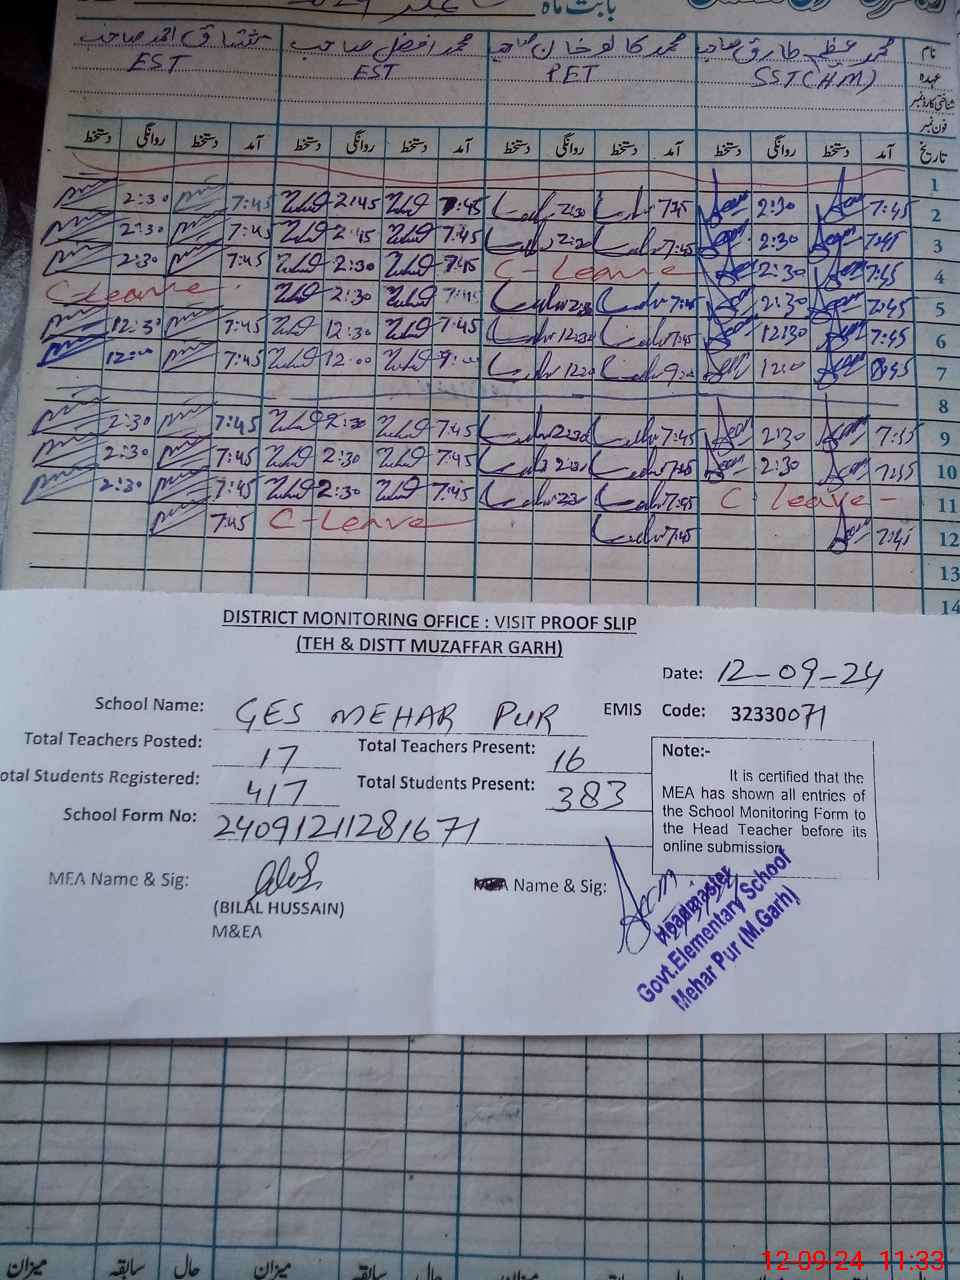 بابت ماہ
نام محمد عظیم طارق صاحب محمد کالو خان صاحب محمد افضل صاحب مشتاق احمد صاحب
عہدہ SST(HM) PET EST EST
شناختی کارڈ نمبر
فون نمبر
تاریخ آمد دستخط روانگی دستخط آمد دستخط روانگی دستخط آمد دستخط روانگی دستخط آمد دستخط روانگی دستخط
1
2 7:45 2:30 7:45 2:30 7:45 2:45 7:45 2:30
3 7:45 2:30 7:45 7:45 2:45 7:45 2:30
4 2:30 C-Leave 7:45 2:30 7:45 2:30
5 7:45 2:30 7:45 2:30 7:45 2:30 C-Leave
6 7:45 12:30 7:45 12:30 7:45 12:30 7:45 12:30
7 12:00 7:45 12:00
8
9 2:30 7:45 2:30 7:45 7:45 2:30
10 2:30 7:45 2:30 7:45 2:30 7:45 2:30
11 C leave - 7:45 7:45 2:30 7:45 2:30
12 7:45 7:45 C-Leave 7:45
13
14
DISTRICT MONITORING OFFICE : VISIT PROOF SLIP
(TEH & DISTT MUZAFFAR GARH)
Date: 12-09-24
School Name: GES MEHAR PUR EMIS Code: 32330071
Total Teachers Posted: 17 Total Teachers Present: 16
otal Students Registered: 417 Total Students Present: 383
School Form No: 24091211281671
Note:-
It is certified that the
MEA has shown all entries of
the School Monitoring Form to
the Head Teacher before its
online submission.
MEA Name & Sig:
(BILAL HUSSAIN)
M&EA
Name & Sig:
Headmaster
Govt.Elementary School
Mehar Pur (M.Garh)
حال سابقہ میزان حال سابقہ میزان
12-09-24 11:33